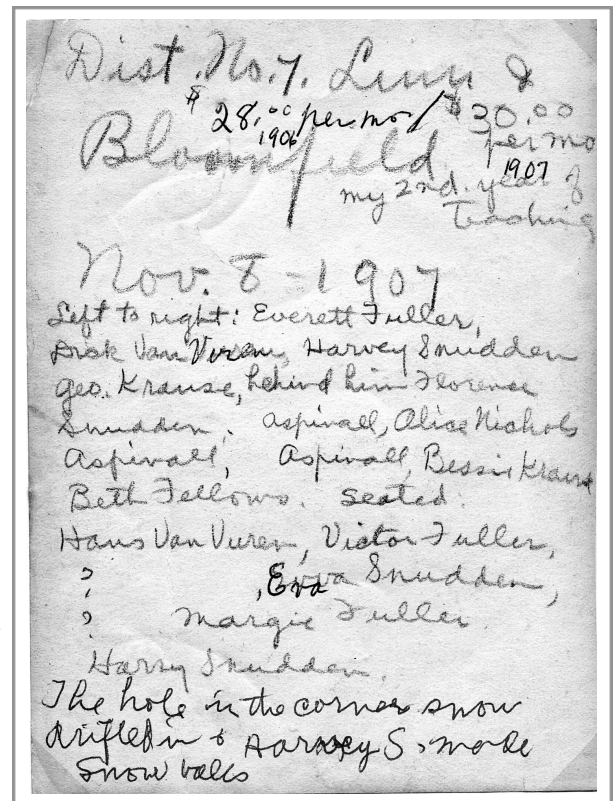 Dist. No. 7. Linn &
$28.00 per mo / $30.00
1906 per mo
Bloomfield 1907
my 2nd. year of
Teaching
Nov. 8 - 1907
Left to right: Everett Fuller,
Dick Van Vuren, Harvey Snudden
Geo. Krause, behind him Florence
Snudden. Aspinall, Alice Nichols
Aspinall, Aspinall, Bessie Krause
Beth Fellows. Seated.
Hans Van Vuren, Victor Fuller,
? , Eva Snudden,
? Margie Fuller.
Harry Snudden.
The hole in the corner snow
drifted in & Harvey S. made
snow balls